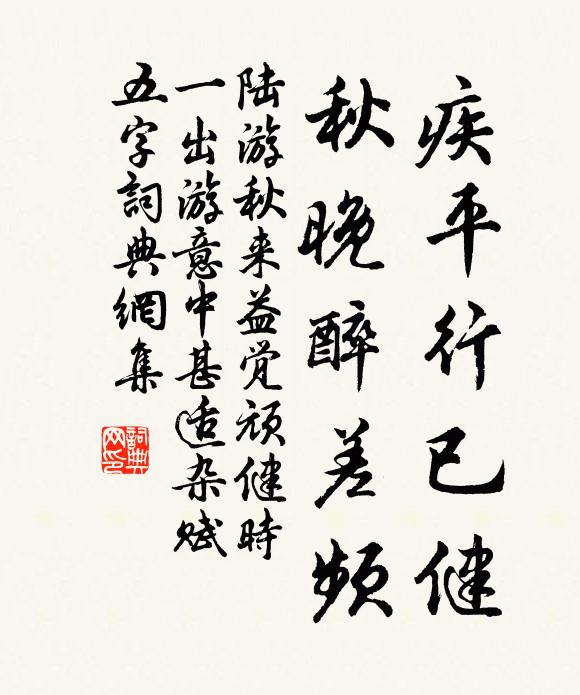 疾平行已健
秋晚醉差频
陆游秋来益觉顽健时
一出游意中甚适杂赋
五字詞典網集
詞典网印